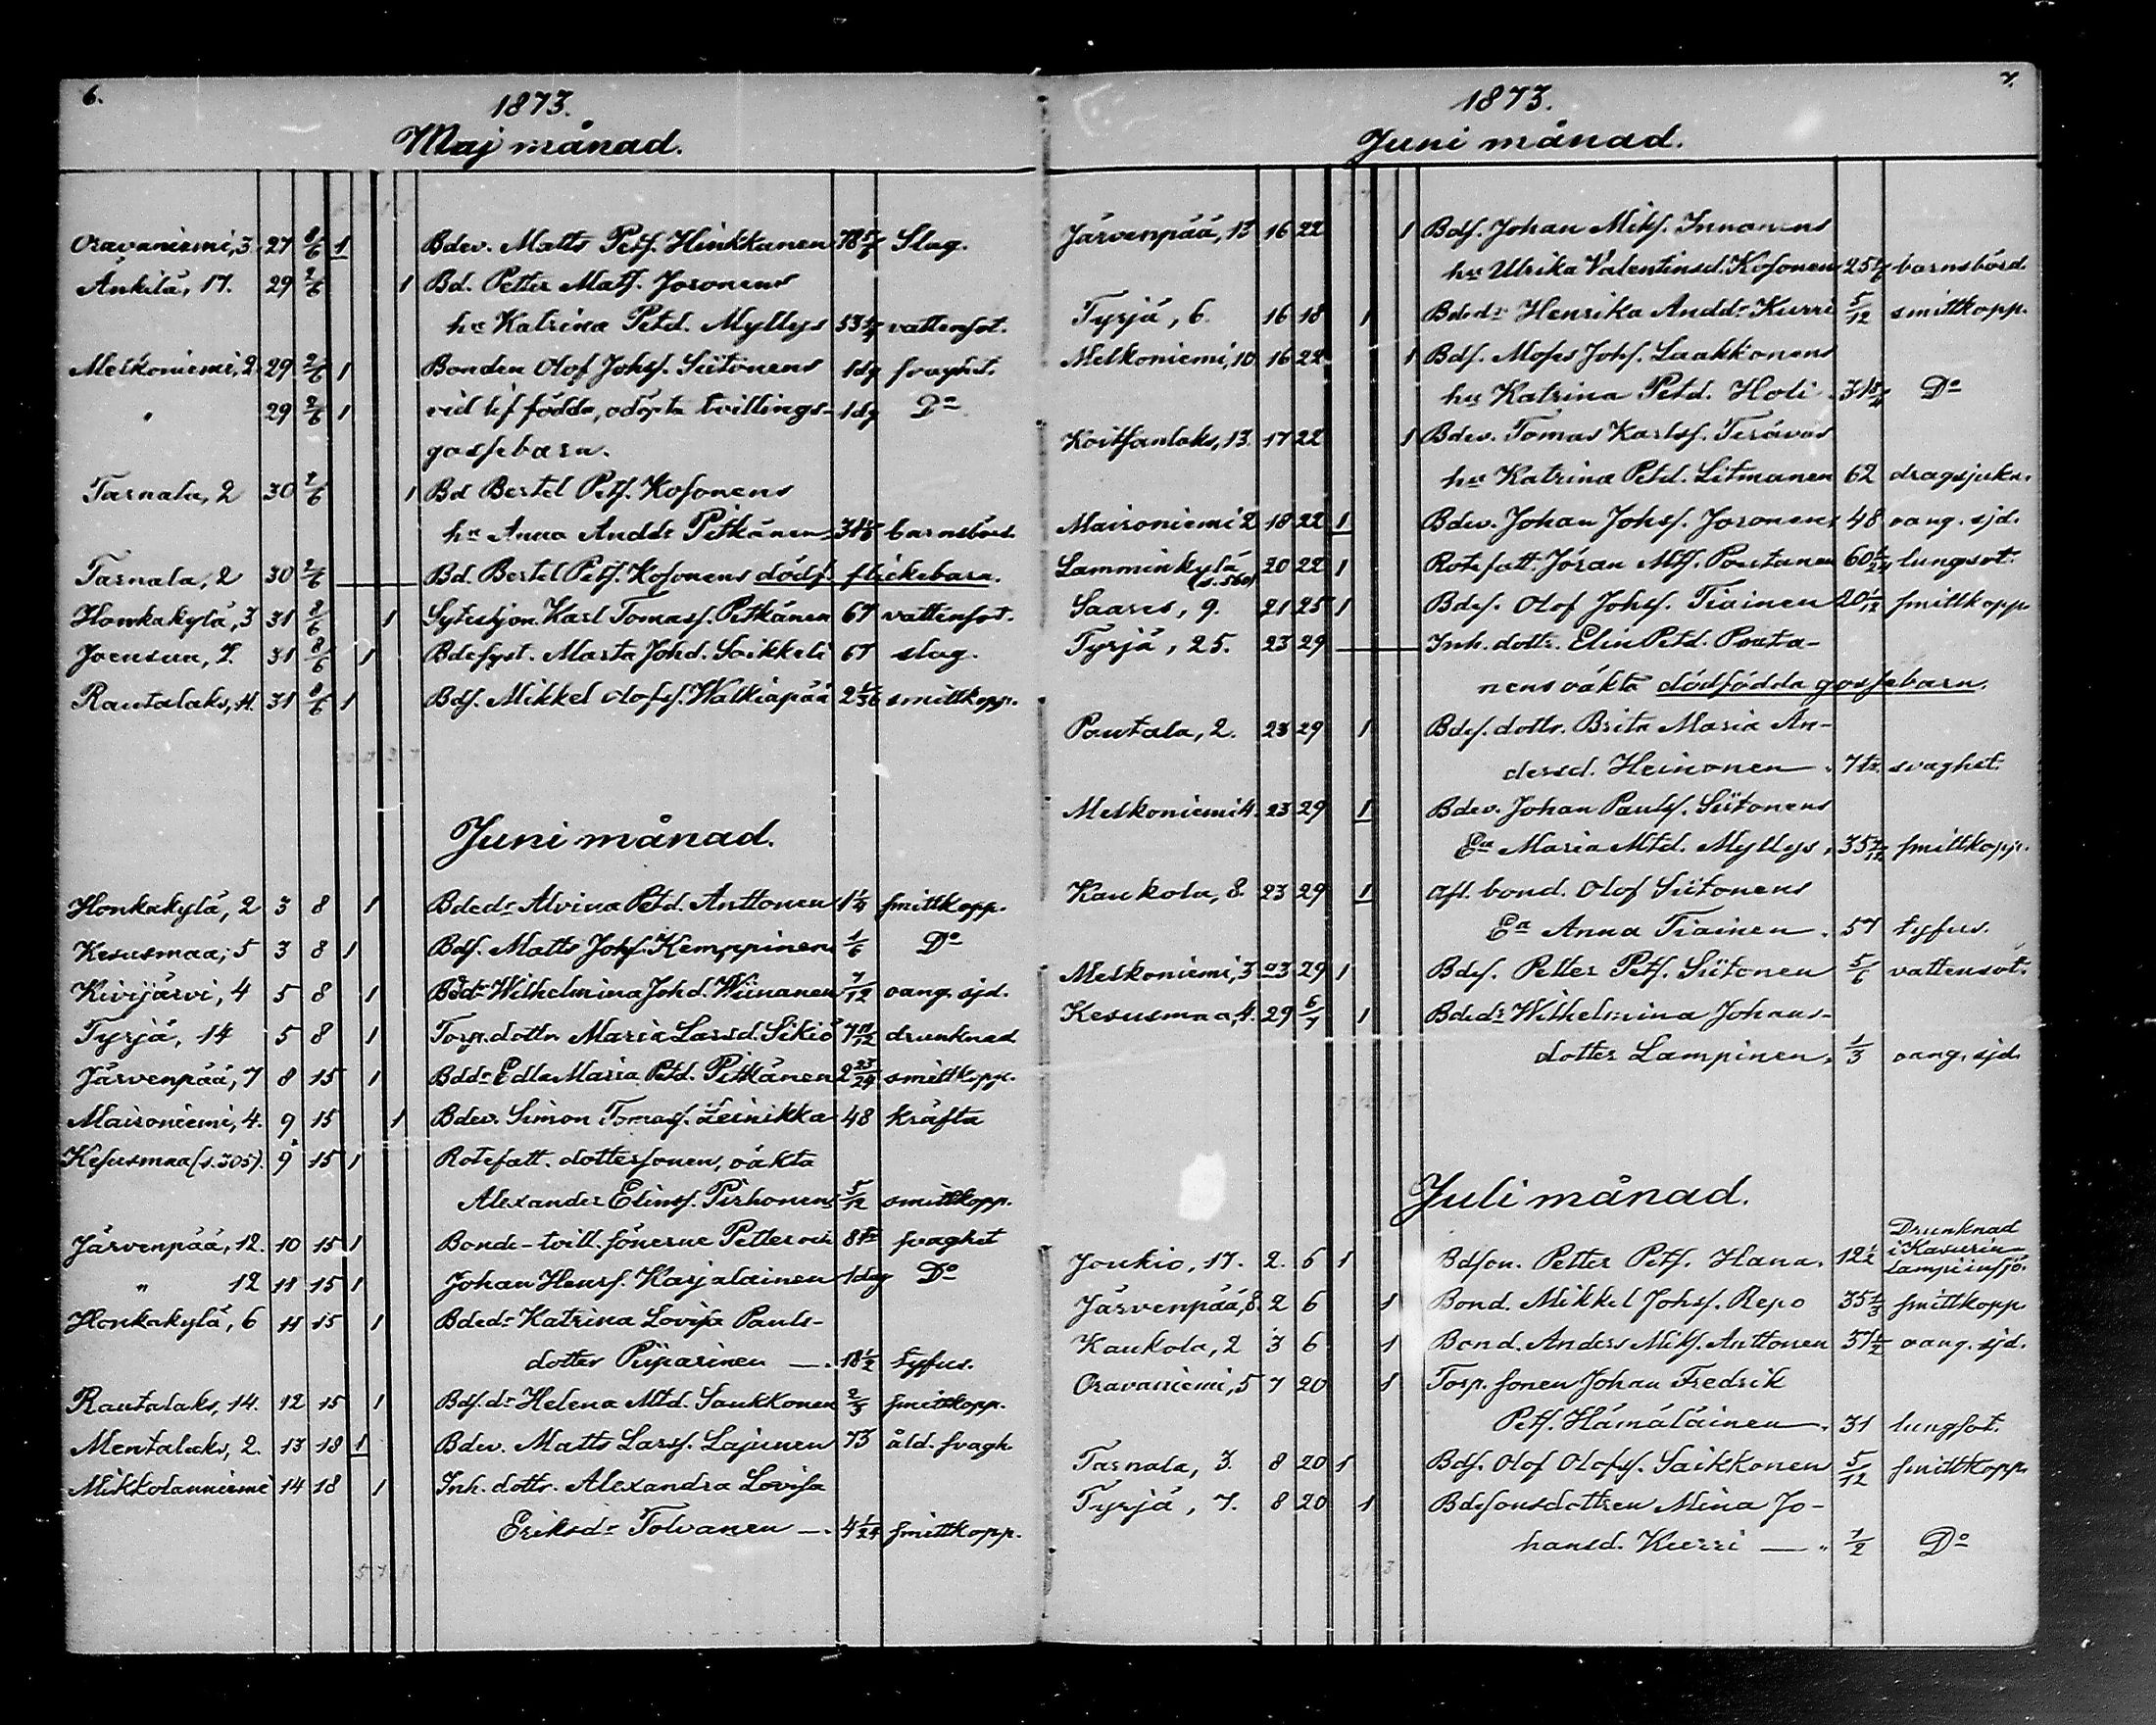 6.
1873.
Maj månad.
Oravaniemi, 3. 27 8/6 1 Bdev. Matts Petf. Hinkkanen 78 Slag.
Änkilä, 17. 29 2/6 1 Bd. Petter Matf. Joronens
hu Katrina Petd. Myllys 53 vattensot.
Melkoniemi, 2. 29 2/6 1 Bonden Olof Johsf. Siitonens 1dg svaghet.
" 29 2/6 1 vid lif födda, odöpta tvillings- 1dg Do
gossebarn.
Tarnala, 2 30 2/6 1 Bd Bertel Petf. Kosonens
hu Anna Andds Pitkänen barnsbörd.
Tarnala, 2 30 2/6 Bd. Bertel Petf. Kosonens dödf. flickebarn.
Honkakylä, 3 31 2/6 1 Sytestjon. Karl Tomasf. Pitkänen 67 vattensot.
Joensuu, 7. 31 8/6 1 Bdesyst. Marta Johd. Saikkeli 67 slag.
Rautalaks, 4. 31 8/6 1 Bdf. Mikkel Olofsf. Walkiapää 2 1/36 smittkopp.
Juni månad.
Honkakylä, 2 3 8 1 Bdedr Alvina Petd. Anttonen 1 1/4 smittkopp.
Kesusmaa, 5 3 8 1 Bdf. Matts Johf. Kemppinen 1/6 Do
Kivijärvi, 4 5 8 1 Bddr Wilhelmina Johd. Wiinanen 7/12 oang. sjd.
Tyrjä, 14 5 8 1 Torp. dottr Maria Larsd. Sikiö 7 11/12 drunknad
Järvenpää, 7 8 15 1 Bddr Edla Maria Petd. Pitkänen 2 23/24 smittkopp.
Maironiemi, 4. 9 15 1 Bdev. Simon Tomasf. Leinikka 48 kräfta
Kesusmaa (s. 305). 9 15 1 Rotefatt. dottersonen, oäkta
Alexander Elinsf. Pirhonen 5/12 smittkopp.
Järvenpää, 12. 10 15 1 Bonde-tvill. sönerne Petter och svaghet
" 12 11 15 1 Johan Henrf. Karjalainen 1dag Do
Honkakylä, 6 11 15 1 Bdedr Katrina Lovisa Pauls-
dotter Piiparinen —. 18 1/2 tyfus.
Rautalaks, 14. 12 15 1 Bdf. dr Helena Mtd. Saukkonen 2/3 smittkopp.
Mentalaks, 2. 13 18 1 Bdev. Matts Larsf. Lajunen 73 åld. svagh.
Mikkolanniemi 14 18 1 Inh. dottr. Alexandra Lovisa
Eriksdr Tolvanen —. 4 1/24 smittkopp.
7.
1873.
Juni månad.
Järvenpää, 13 16 22 1 Bdf. Johan Mikf. Innanens
hu Ulrika Valentinsd. Kosonen barnsbörd.
Tyrjä, 6. 16 18 1 Bdedr Henrika Anddr Kurri 5/12 smittkopp.
Melkoniemi, 10 16 22 1 Bdf. Moses Johf. Laakkonens
hu Katrina Petd. Holi Do
Koitsanlaks, 13. 17 22 1 Bdev. Tomas Karlsf. Terävas
hu Katrina Petd. Litmanen 62 dragsjuka.
Maironiemi 2 18 22 1 Bdev. Johan Johsf. Joronen 48 oang. sjd.
Lamminkylä (s. 560) 20 22 1 Rotefatt. Jöran Mtf. Poutanen lungsot.
Saares, 9. 21 25 1 Bdef. Olof Johsf. Tiainen 20 1/12 smittkopp
Tyrjä, 25. 23 29 Inh. dottr. Elin Petd. Pouta-
nens oäkta dödfödda gossebarn.
Poutala, 2. 23 29 1 Bdef. dottr. Brita Maria An-
dersd. Heinonen —. svaghet.
Melkoniemi 4. 23 29 1 Bdev. Johan Paulsf. Siitonens
Ea Maria Mtd. Myllys. smittkopp.
Kaukola, 8. 23 29 1 afl. bond. Olof Siitonens
Ea Anna Tiainen. 57 tyfus.
Melkoniemi, 3 23 29 1 Bdef. Petter Petf. Siitonen 5/6 vattensot.
Kesusmaa, 4. 29 6/7 1 Bdedr Wilhelmina Johans-
dotter Lampinen. 1/3 oang. sjd.
Juli månad.
Joukio, 17. 2. 6 1 Bdson. Petter Petf. Hana. 12 1/2 Drunknad
i Kasurin-
lampi insjö.
Järvenpää, 8. 2 6 1 Bond. Mikkel Johsf. Repo 35 1/3 smittkopp
Kaukola, 2 3 6 1 Bond. Anders Mikf. Anttonen 37 1/2 oang. sjd.
Oravaniemi, 5 7 20 1 Torp. sonen Johan Fredrik
Petf. Hämäläinen. 31 lungsot.
Tarnala, 3. 8 20 1 Bdf. Olof Olofsf. Saikkonen 5/12 smittkopp
Tyrjä, 7. 8 20 1 Bdesonsdottren Mina Jo-
hansd. Kurri —" 1/2 Do